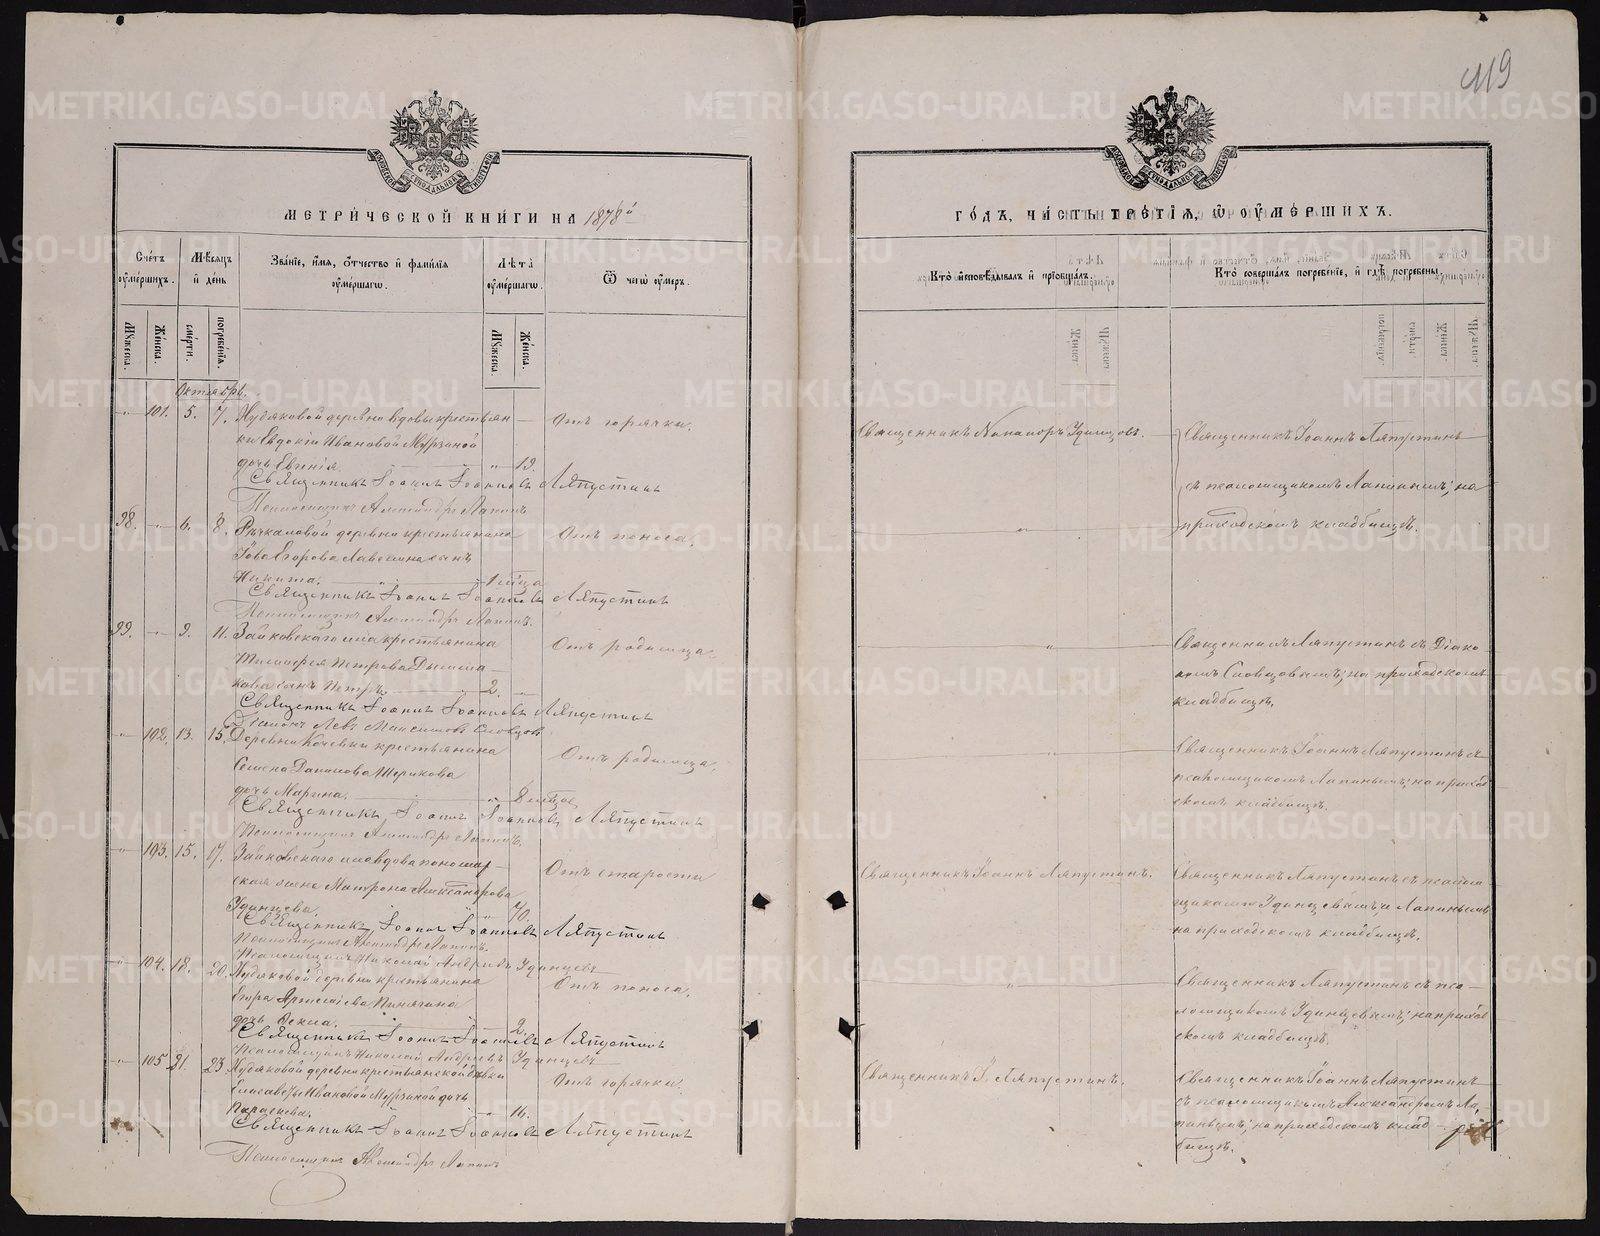 419
МЕТРИЧЕСКОЙ КНИГИ НА 1878й
Счетъ оумершихъ.
Мѣсяцъ и день
Званіе, имя, отчество и фамилія оумершагѡ.
Лѣта оумершагѡ.
Ѿ чегѡ оумеръ.
Мужеска.
Женска.
смерти.
погребенія.
Мужеска.
Женска.
Октябрь.
101. 5. 7. Худяковой деревни вдовы крестьян- Отъ горячки.
ки Евдокіи Ивановой Мурзиной
дочь Евгенія. 19.
Священникъ Іоаннъ Іоанновъ Ляпустинъ
Псаломщикъ Александръ Лапинъ
98. 6. 8. деревни крестьянина Отъ поноса.
Іова Егорова сынъ
Никита. 1 мѣсяца
Священникъ Іоаннъ Іоанновъ Ляпустинъ
Псаломщикъ Александръ Лапинъ.
99. 9. 11. Зайковскаго села крестьянина Отъ родимца.
Тимофея Петрова
кова сынъ Петръ. 2.
Священникъ Іоаннъ Іоанновъ Ляпустинъ
Діаконъ Левъ Максимовъ Словцовъ
102. 13. 15. Деревни Кочевки крестьянина Отъ родимца.
Семена Данилова Ширикова
дочь Марина. 8 мѣсяцев
Священникъ Іоаннъ Іоанновъ Ляпустинъ
Псаломщикъ Александръ Лапинъ.
103. 15. 17. Зайковскаго села вдова пономар- Отъ старости
ская жена Матрона Александрова
Удинцева. 70.
Священникъ Іоаннъ Іоанновъ Ляпустинъ
Псаломщикъ Александръ Лапинъ.
Псаломщикъ Николай Андреевъ Удинцевъ
104. 18. 20. Худяковой деревни крестьянина Отъ поноса.
Егора Артемьева Пинягина
дочь Фекла. 2.
Священникъ Іоаннъ Іоанновъ Ляпустинъ
Псаломщикъ Николай Андреевъ Удинцевъ
105. 21. 23. Худяковой деревни крестьянской дѣвки Отъ горячки.
Елисаветы Ивановой Мурзиной дочь
Параскева. 16.
Священникъ Іоаннъ Іоанновъ Ляпустинъ
Псаломщикъ Александръ Лапинъ
ГОДЪ, ЧАСТЬ ТРЕТІЯ, Ѡ ОУМЕРШИХЪ.
Кто исповѣдывалъ и пріобщалъ.
Кто совершалъ погребеніе, и гдѣ погребены.
Священникъ Никаноръ Удинцовъ. Священникъ Іоаннъ Ляпустинъ
съ псаломщикомъ Лапинымъ; на
приходскомъ кладбищѣ.
Священникъ Ляпустинъ съ Діако-
номъ Словцовымъ; на приходскомъ
кладбищѣ.
Священникъ Іоаннъ Ляпустинъ съ
псаломщикомъ Лапинымъ; на приход
скомъ кладбищѣ.
Священникъ Іоаннъ Ляпустинъ. Священникъ Ляпустинъ съ псалом-
щиками Удинцевымъ и Лапинымъ
на приходскомъ кладбищѣ.
Священникъ Ляпустинъ съ пса-
ломщикомъ Удинцевымъ; на приход
скомъ кладбищѣ.
Священникъ І. Ляпустинъ. Священникъ Іоаннъ Ляпустинъ
съ псаломщикомъ Александромъ Ла-
пинымъ; на приходскомъ клад-
бищѣ.
METRIKI.GASO-URAL.RU